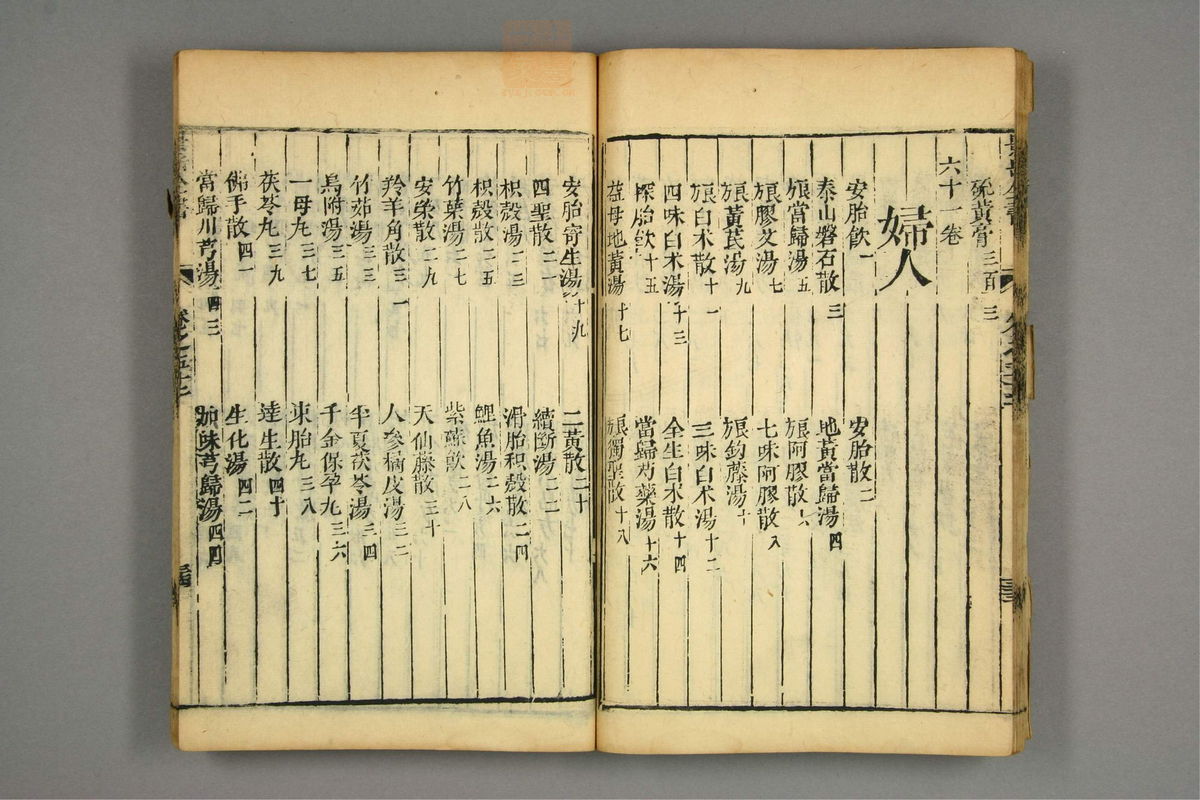 硫黃膏三百三
六十一卷
婦人
安胎飲一
安胎散二
泰山磐石散三
地黃當歸湯四
㫰當歸湯五
㫰阿膠散六
㫰膠艾湯七
七味阿膠散八
㫰黃芪湯九
㫰鈎藤湯十
㫰白朮散十一
三味白朮湯十二
四味白朮湯十三
全生白朮散十四
探胎飲十五
當歸芍藥湯十六
益母地黃湯十七
㫰獨聖散十八
安胎寄生湯十九
二黃散二十
四聖散二一
續斷湯二二
枳殼湯二三
滑胎枳殼散二四
枳殼散二五
鯉魚湯二六
竹葉湯二七
紫蘇飲二八
安榮散二九
天仙藤散三十
羚羊角散三一
人參橘皮湯三二
竹茹湯三三
半夏茯苓湯三四
烏附湯三五
千金保孕丸三六
一母丸三七
束胎丸三八
茯苓丸三九
達生散四十
佛手散四一
生化湯四二
當歸川芎湯四三
加味芎歸湯四四